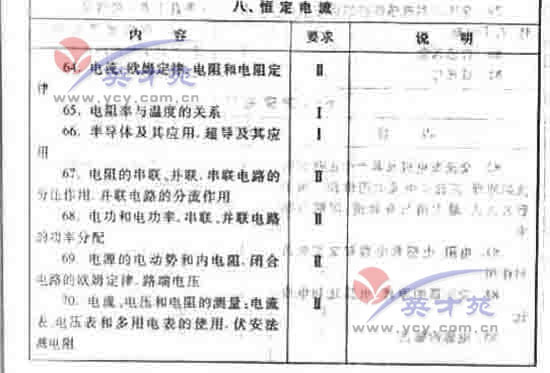 八、恒定电流
内 容 要求 说 明
64. 电流、欧姆定律、电阻和电阻定 Ⅱ
律
65. 电阻率与温度的关系 Ⅰ
66. 半导体及其应用,超导及其应 Ⅰ
用
67. 电阻的串联、并联,串联电路的 Ⅱ
分压作用,并联电路的分流作用
68. 电功和电功率,串联、并联电路 Ⅱ
的功率分配
69. 电源的电动势和内电阻,闭合 Ⅱ
电路的欧姆定律,路端电压
70. 电流、电压和电阻的测量;电流 Ⅱ
表、电压表和多用电表的使用,伏安法
测电阻
英才苑
www.ycy.com.cn
英才苑
www.ycy.com.cn